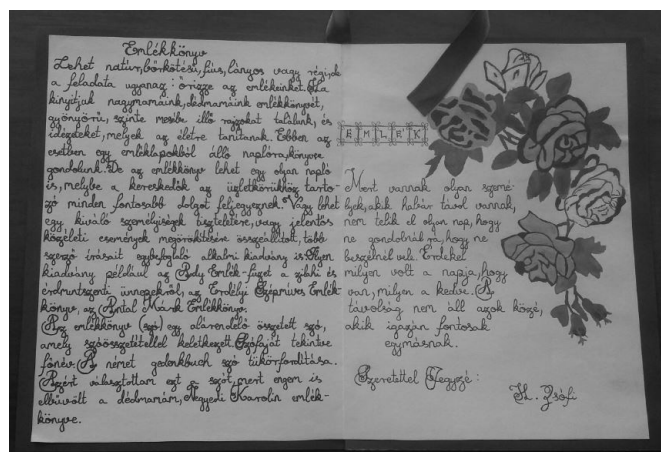 Emlékkönyv
Lehet natúr, bőrkötésű, fiús, lányos vagy régi, de
a feladata ugyanaz: őrizze az emlékeinket. Ha
kinyitjuk nagymamáink, dédmamáink emlékkönyvét,
gyönyörű, szinte mesébe illő rajzokat találunk, és
idézeteket, melyek az életre tanítanak. Ebben az
esetben egy emléklapokból álló naplóra, könyvre
gondolunk. De az emlékkönyv lehet egy olyan napló
is, melybe a kereskedők az üzletkörükhöz tarto-
zó minden fontosabb dolgot feljegyeznek. Vagy lehet
egy kiváló személyiségek tiszteletére, vagy jelentős
közéleti események megörökítésére összeállított, több
szerző írásait egybefoglaló alkalmi kiadvány is. Ilyen
kiadvány például az Ady Emlék-füzet a zilahi és
érdmindszenti ünnepekről, az Erdélyi Szépmíves Emlék-
könyv, az Antal Márk Emlékkönyv.
Az emlékkönyv (szó) egy alárendelő összetett szó,
amely szóösszetétellel keletkezett. Szófaját tekintve
főnév. A német gedenkbuch szó tükörfordítása.
Azért választottam ezt a szót, mert engem is
elbűvölt a dédmamám, Negyedi Karolin emlék-
könyve.
EMLÉK
Mert vannak olyan szemé-
lyek, akik habár távol vannak,
nem telik el olyan nap, hogy
ne gondolnál rá, hogy ne
beszélnél vele. Érdekel
milyen volt a napja, hogy
van, milyen a kedve. A
távolság nem áll azok közé,
akik igazán fontosak
egymásnak.
Szeretettel Jegyzé:
Zsófi